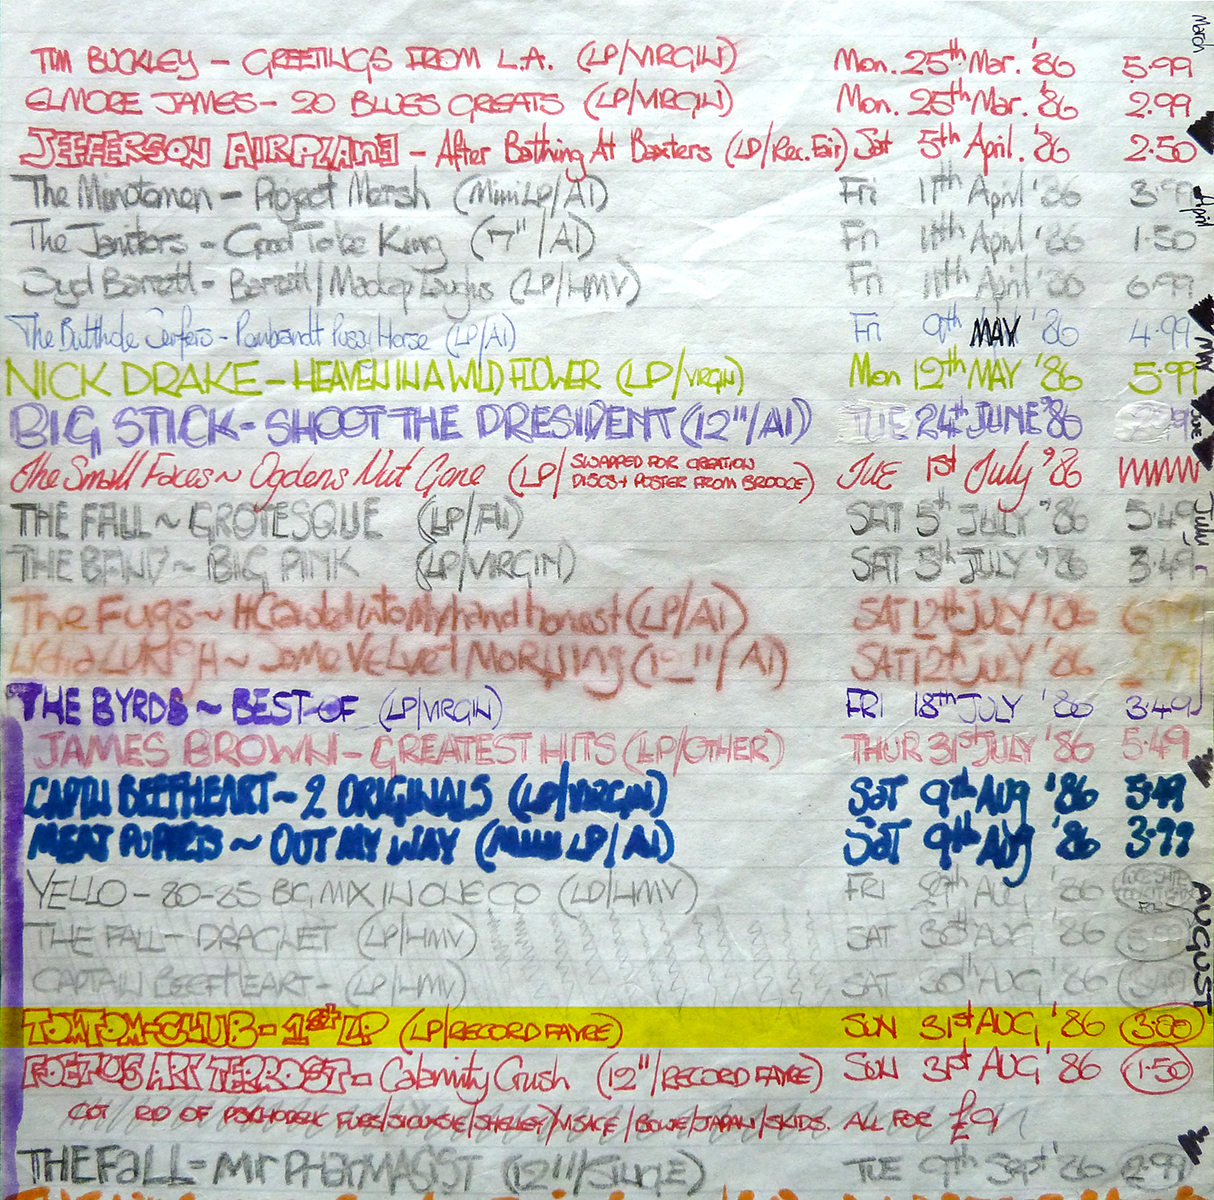 March
TIM BUCKLEY - GREETINGS FROM L.A. (LP/VIRGIN) Mon. 25th Mar. '86 5.99
ELMORE JAMES - 20 BLUES GREATS (LP/VIRGIN) Mon. 25th Mar. '86 2.99
JEFFERSON AIRPLANE - After Bathing At Baxters (LP/Rec. Fair) Sat 5th April. '86 2.50
The Minutemen - Project Mersh (Mini LP/A1) Fri 11th April '86 3.99
April
The Janitors - Good To be King (7"/A1) Fri 11th April '86 1.50
Syd Barrett - Barrett/Madcap Laughs (LP/HMV) Fri 11th April '86 6.99
The Butthole Surfers - Rembrandt Pussy Horse (LP/A1) Fri 9th MAY '86 4.99
MAY
NICK DRAKE - HEAVEN IN A WILD FLOWER (LP/VIRGIN) Mon 12th MAY '86 5.99
BIG STICK - SHOOT THE PRESIDENT (12"/A1) TUE 24th JUNE '86
JUNE
The Small Faces ~ Ogdens Nut Gone (LP/SWAPPED FOR CREATION DISCS + POSTER FROM BROOCE) TUE 1st July '86
THE FALL ~ GROTESQUE (LP/A1) SAT 5th JULY '86 5.49
July
THE BAND ~ BIG PINK (LP/VIRGIN) SAT 5th JULY '86 3.49
The Fugs ~ It Crawled into My hand honest (LP/A1) SAT 12th JULY '86
Lydia LUNCH ~ Some VELVET MORNING (12"/A1) SAT 12th JULY '86
THE BYRDS ~ BEST OF (LP/VIRGIN) FRI 18th JULY '86 3.49
JAMES BROWN - GREATEST HITS (LP/OTHER) THUR 31st JULY '86 5.49
CAPTN BEEFHEART ~ 2 ORIGINALS (LP/VIRGIN) SAT 9th AUG '86 5.49
MEAT PUPPETS ~ OUT MY WAY (MINI LP/A1) SAT 9th AUG '86 3.99
YELLO - 80-85 BIG MIX IN ONE GO (LP/HMV) FRI 29th AUG '86
AUGUST
THE FALL - DRAGNET (LP/HMV) SAT 30th AUG '86 5.99
CAPTAIN BEEFHEART - (LP/HMV) SAT 30th AUG '86
TOM TOM CLUB - 1st LP (LP/RECORD FAYRE) SUN 31st AUG '86 3.80
FOETUS ART TERROST - Calamity Crush (12"/RECORD FAYRE) SUN 31st AUG '86 1.50
GOT RID OF PSYCHEDELIC FURS/SIOUXSIE/SHELLEY/VISAGE/BOWIE/JAPAN/SKIDS. ALL FOR £9
THE FALL - Mr PHARMACIST (12"/SINGLE) TUE 9th Sept '86 2.99